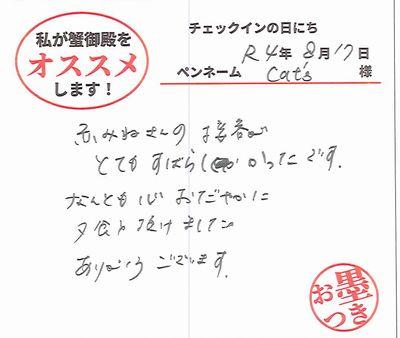 私が蟹御殿を
オススメ
します！
チェックインの日にち
R4年8月17日
ペンネーム Cat's 様
みねさんの接客が
とてもすばらしかったです.
なんとも心おだやかに
夕食も頂けました
ありがとうございます.
お墨つき